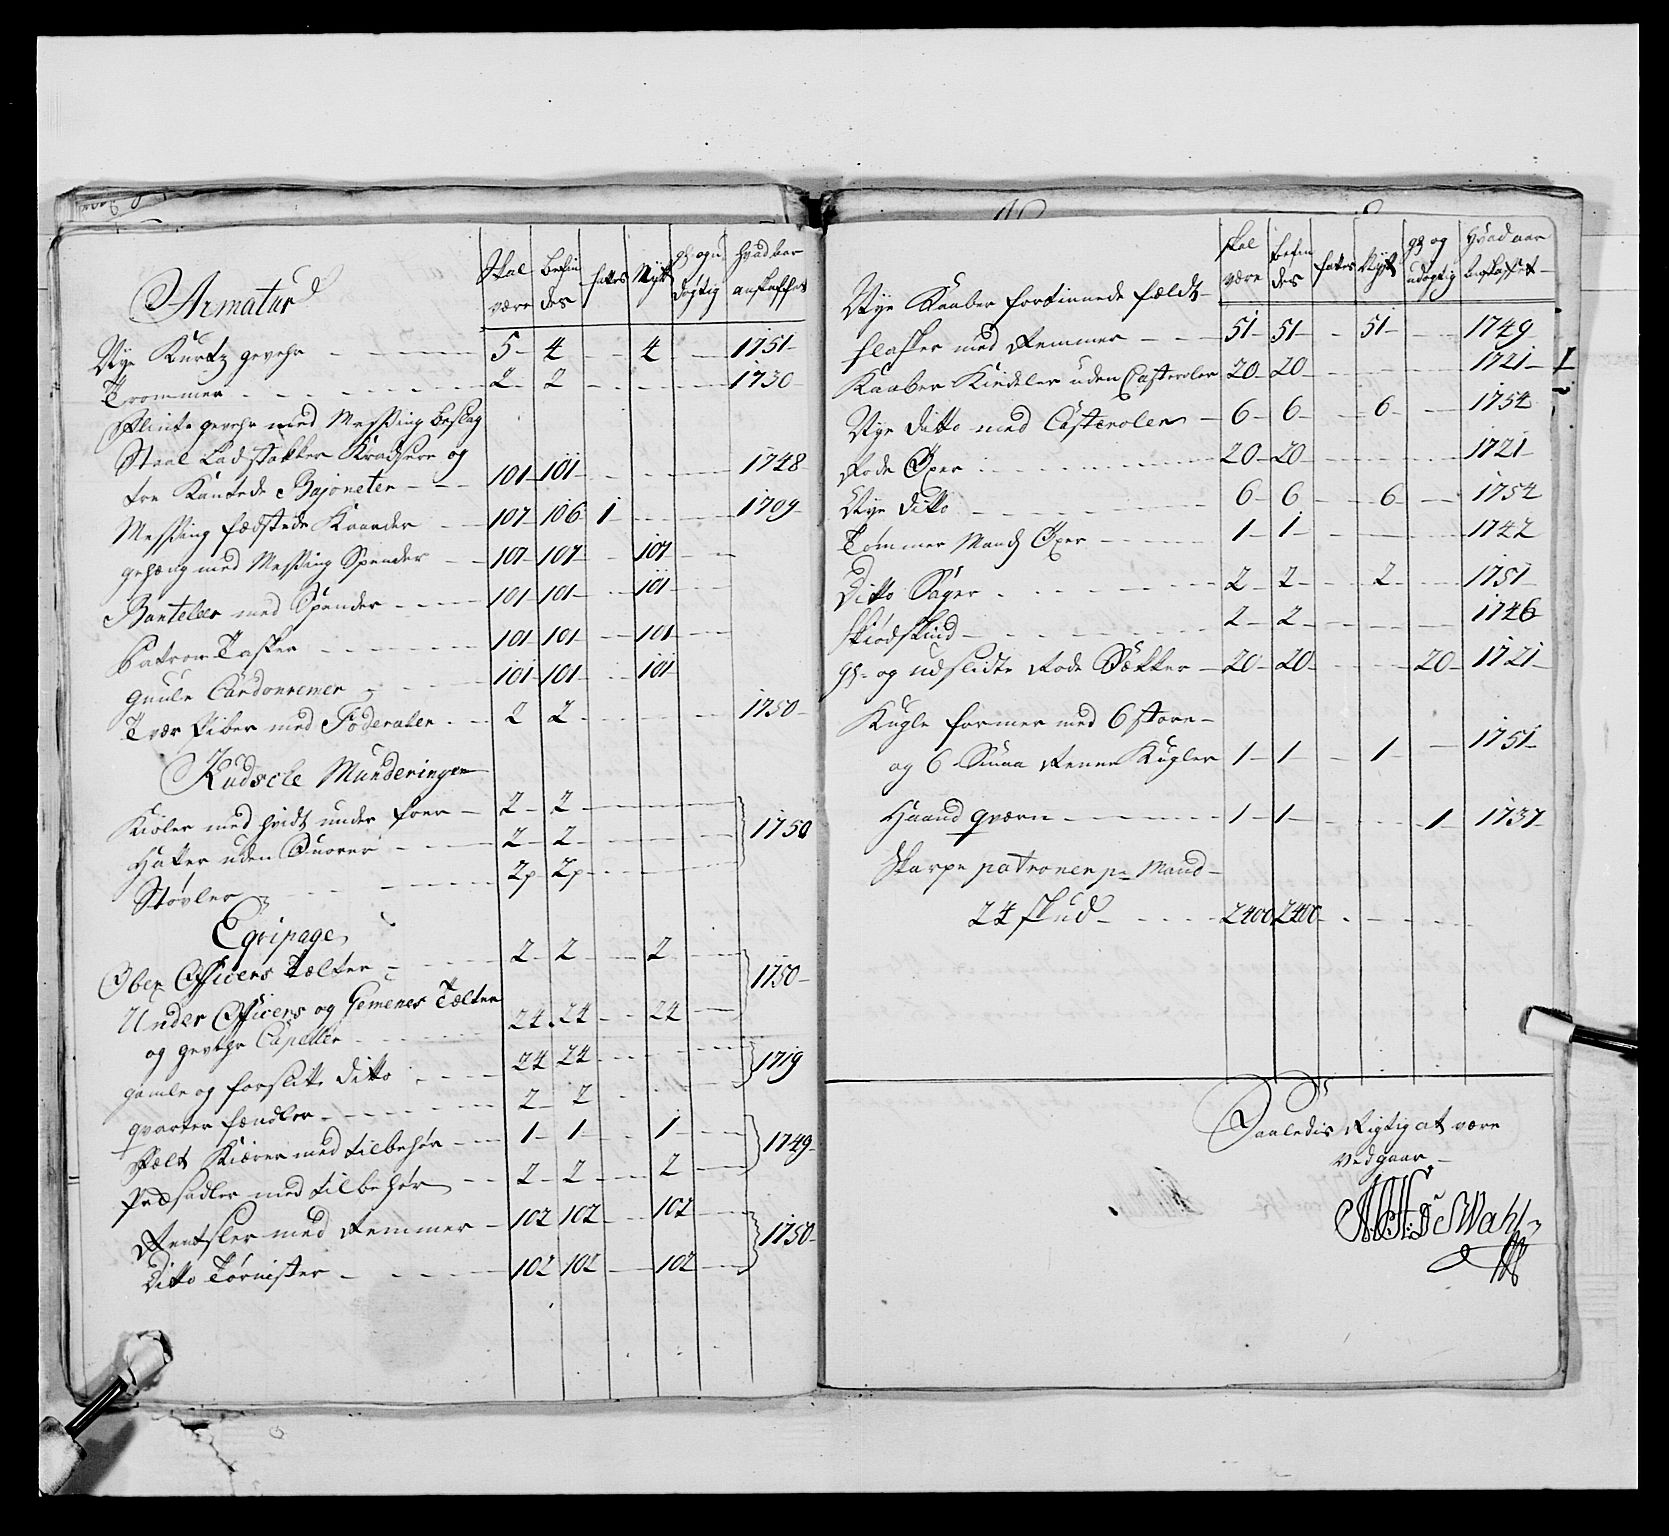 Armatur
Skal være | befindes | fattes | Nÿt | gl. og udögtig | Hvad aar anskaffet
Nÿe Kurtz gevehr 5 4 4 1751
Trommer 2 2 1730
Flinte gevehr med Messing beslag
Staal Ladstokker Kradsere og
tre Kantede Bajoneter 101 101 1748
Messing fædstede Kaarder 107 106 1 1709
gehæng med Messing Spender 107 107 107
Bantelær med Spender 101 101 101
Patron Tasker 101 101 101
guule Cardonremer 101 101 101
Tvær Piber med Foderaler 2 2 1750
Kudscle Munderingen
Kioler med hvidt under foer 2 2
Hatter uden Snorer 2 2 1750
Støvler 2p 2p
Eqvipage
Ober Officers Tælter 2 2 2
Under Officers og Gemenes Tælter 1750
og gevehr Capeller 24 24 24
gamle og forslitte ditto 24 24 1719
qvarteer fændler 2 2
Fælt Kiærer med tilbehør 1 1 1 1749
Pedsadler med tilbehør 2 2 2
Rentsler med Remmer 102 102 102 1750
Ditto Törnister 102 102 102
skal være | befindes | fattes | Nÿt | gl. og udögtig | Hvad aar anskaffet
Nÿe Kaaber fortinnede fældt
flasker med Remmer 51 51 51 1749
Kaaber Kiedeler uden Casteroler 20 20 1721
Nÿe ditto med Casteroler 6 6 6 1754
Rode Öxer 20 20 1721
Nÿe ditto 6 6 6 1754
Tömmer Mands Öxer 1 1 1742
Ditto Sauger 2 2 2 1751
Skiödskind 2 2 1746
gl. og udslidte Rode Sække 20 20 20 1721
Kugle former med 6 store
og 6 Smaa Rener Kugler 1 1 1 1751
Haand qværn 1 1 1 1737
Skarpe patroner pr Mand
24 skud 2400 2400
Saaledis Rigtig at være
vedgaar
DeWahl